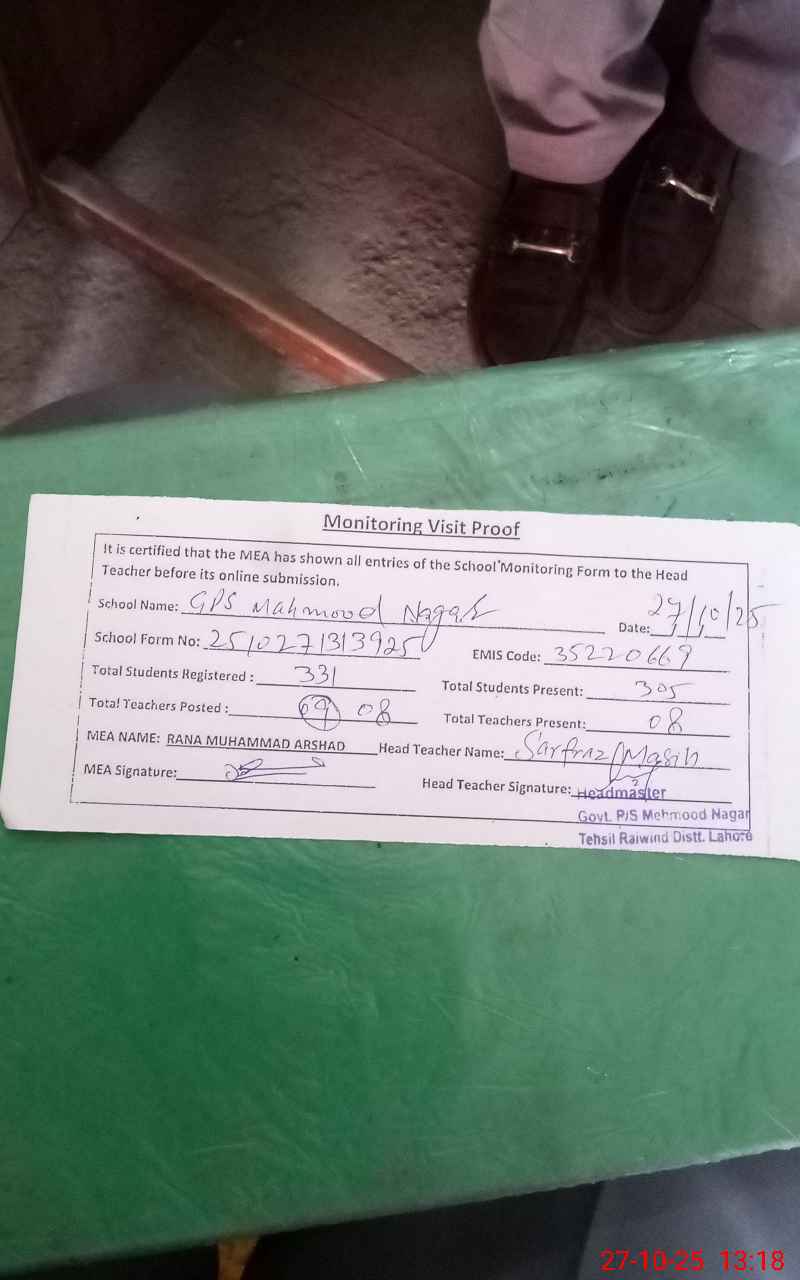 Monitoring Visit Proof
It is certified that the MEA has shown all entries of the School Monitoring Form to the Head
Teacher before its online submission.
School Name: GPS Mahmood Nagar Date: 27/10/25
School Form No: 2510271313925 EMIS Code: 35220669
Total Students Registered : 331 Total Students Present: 305
Total Teachers Posted : 09 08 Total Teachers Present: 08
MEA NAME: RANA MUHAMMAD ARSHAD Head Teacher Name: Sarfraz Masih
MEA Signature: Head Teacher Signature:
Headmaster
Govt. P/S Mehmood Nagar
Tehsil Raiwind Distt. Lahore
27-10-25 13:18